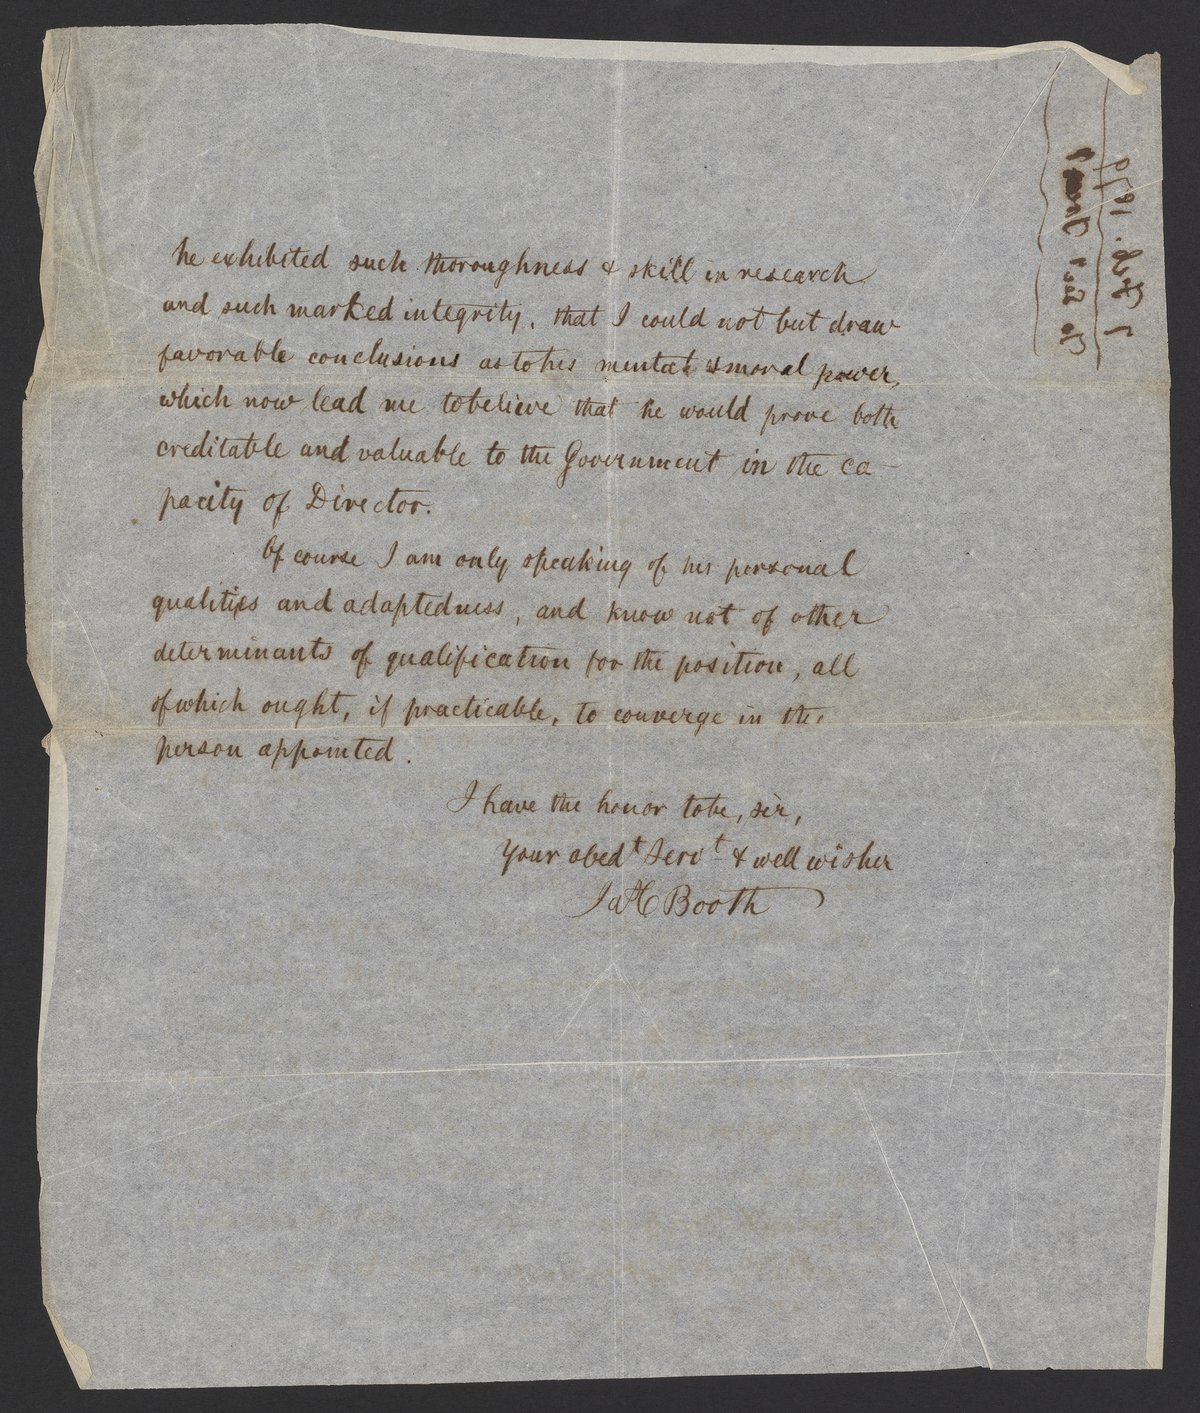 he exhibited such thoroughness & skill in research
and such marked integrity, that I could not but draw
favorable conclusions as to his mental & moral power,
which now lead me to believe that he would prove both
creditable and valuable to the Government in the ca-
pacity of Director.
Of course I am only speaking of his personal
qualities and adaptedness, and know not of other
determinants of qualification for the position, all
of which ought, if practicable, to converge in the
person appointed.
I have the honor to be, sir,
Your obedt Servt & well wisher
JaC Booth
To Sec
7 Feb. 1870